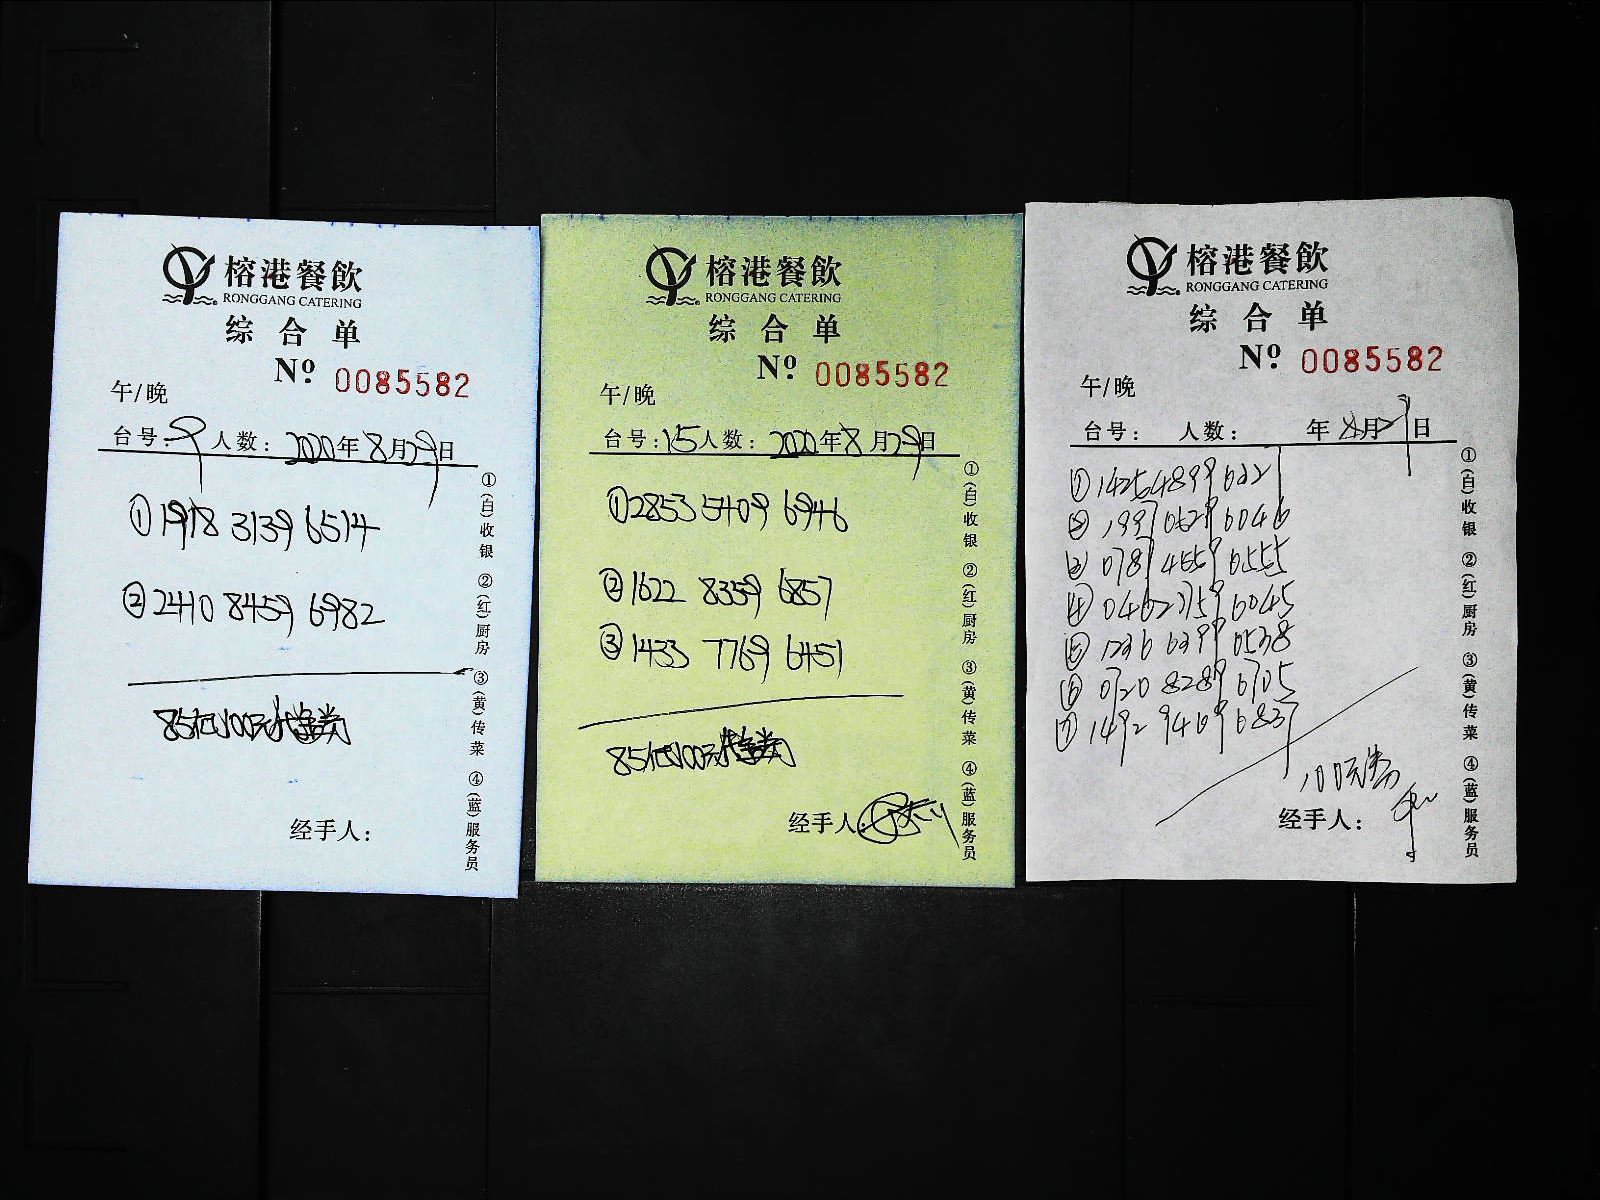 榕港餐飲
RONGGANG CATERING
综合单
Nº 0085582
午/晚
台号:9 人数: 2020年8月29日
①1978 3139 6514
②2410 8459 6982
85扣100元代金券
经手人:
①(白)收银 ②(红)厨房 ③(黄)传菜 ④(蓝)服务员
榕港餐飲
RONGGANG CATERING
综合单
Nº 0085582
午/晚
台号:15人数: 2020年8月29日
①2853 5409 6946
②1622 8359 6857
③1433 7769 6451
85扣100元代金券
经手人:
①(白)收银 ②(红)厨房 ③(黄)传菜 ④(蓝)服务员
榕港餐飲
RONGGANG CATERING
综合单
Nº 0085582
午/晚
台号: 人数: 年8月29日
①1425 4899 6227
②1997 0629 6046
③0787 4559 6555
④0462 3759 6045
⑤1236 6399 6538
⑥0720 8289 6705
⑦1492 9469 6837
100元券
经手人:
①(白)收银 ②(红)厨房 ③(黄)传菜 ④(蓝)服务员